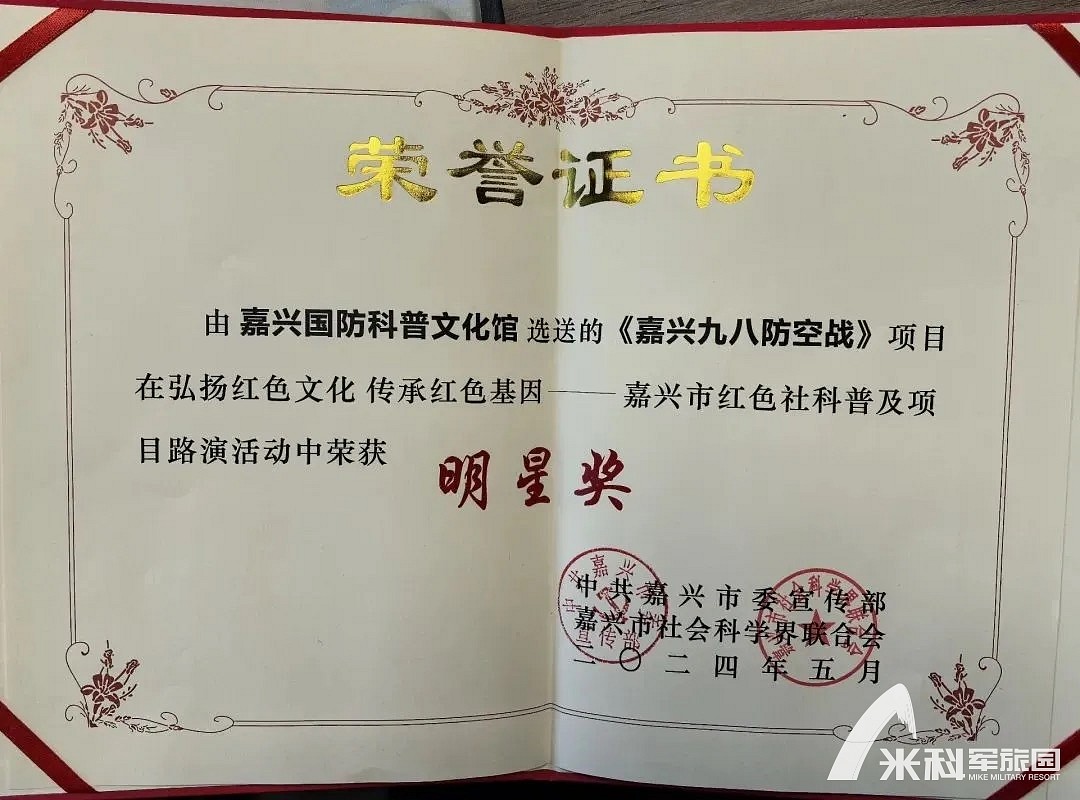 荣誉证书
由 嘉兴国防科普文化馆 选送的《嘉兴九八防空战》项目
在弘扬红色文化 传承红色基因——嘉兴市红色社科普及项
目路演活动中荣获
明星奖
中共嘉兴市委宣传部
嘉兴市社会科学界联合会
二〇二四年五月
米科军旅园
MIKE MILITARY RESORT